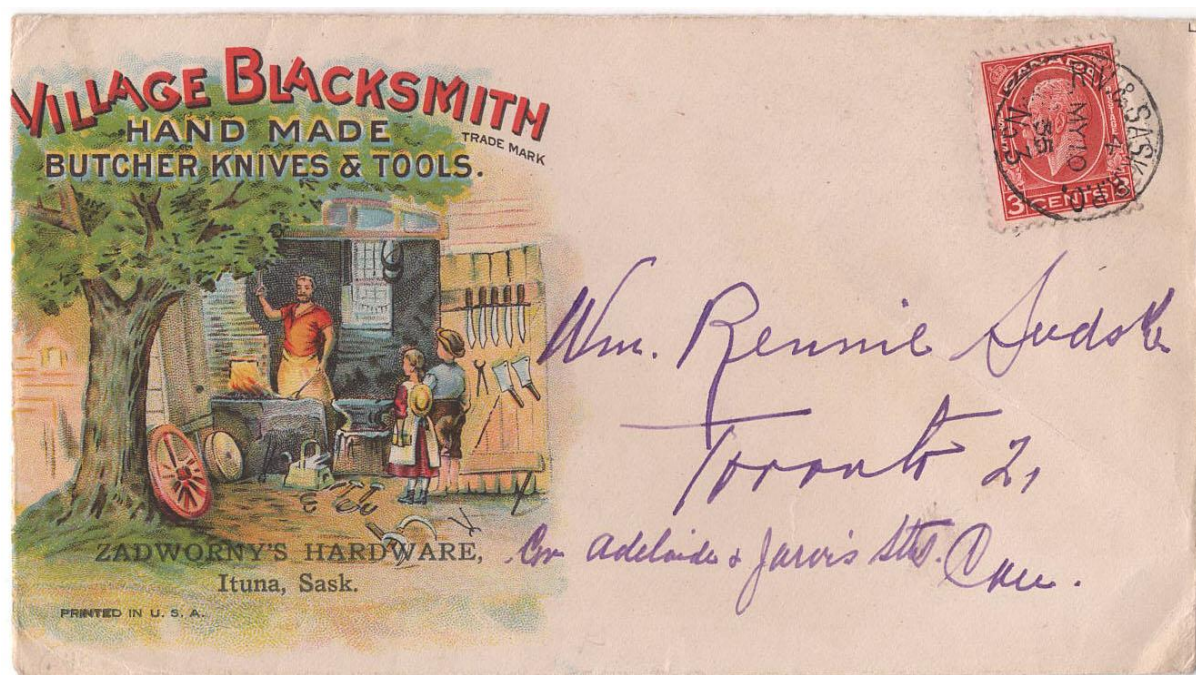 VILLAGE BLACKSMITH
TRADE MARK
HAND MADE
BUTCHER KNIVES & TOOLS.
ZADWORNY'S HARDWARE,
Ituna, Sask.
PRINTED IN U. S. A.
CANADA
3 CENTS 3
& SASK. R.P.O.
MY 10
35
No. 3
Wm. Rennie
Toronto 2,
Cor Adelaide & Jarvis Sts.
Can.